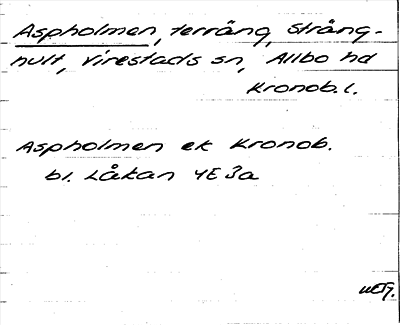 Aspholmen, terräng, Strång-
hult, Virestads sn, Allbo hd
Kronob. l.
Aspholmen ek Kronob.
bl. Låkan 4E 3a